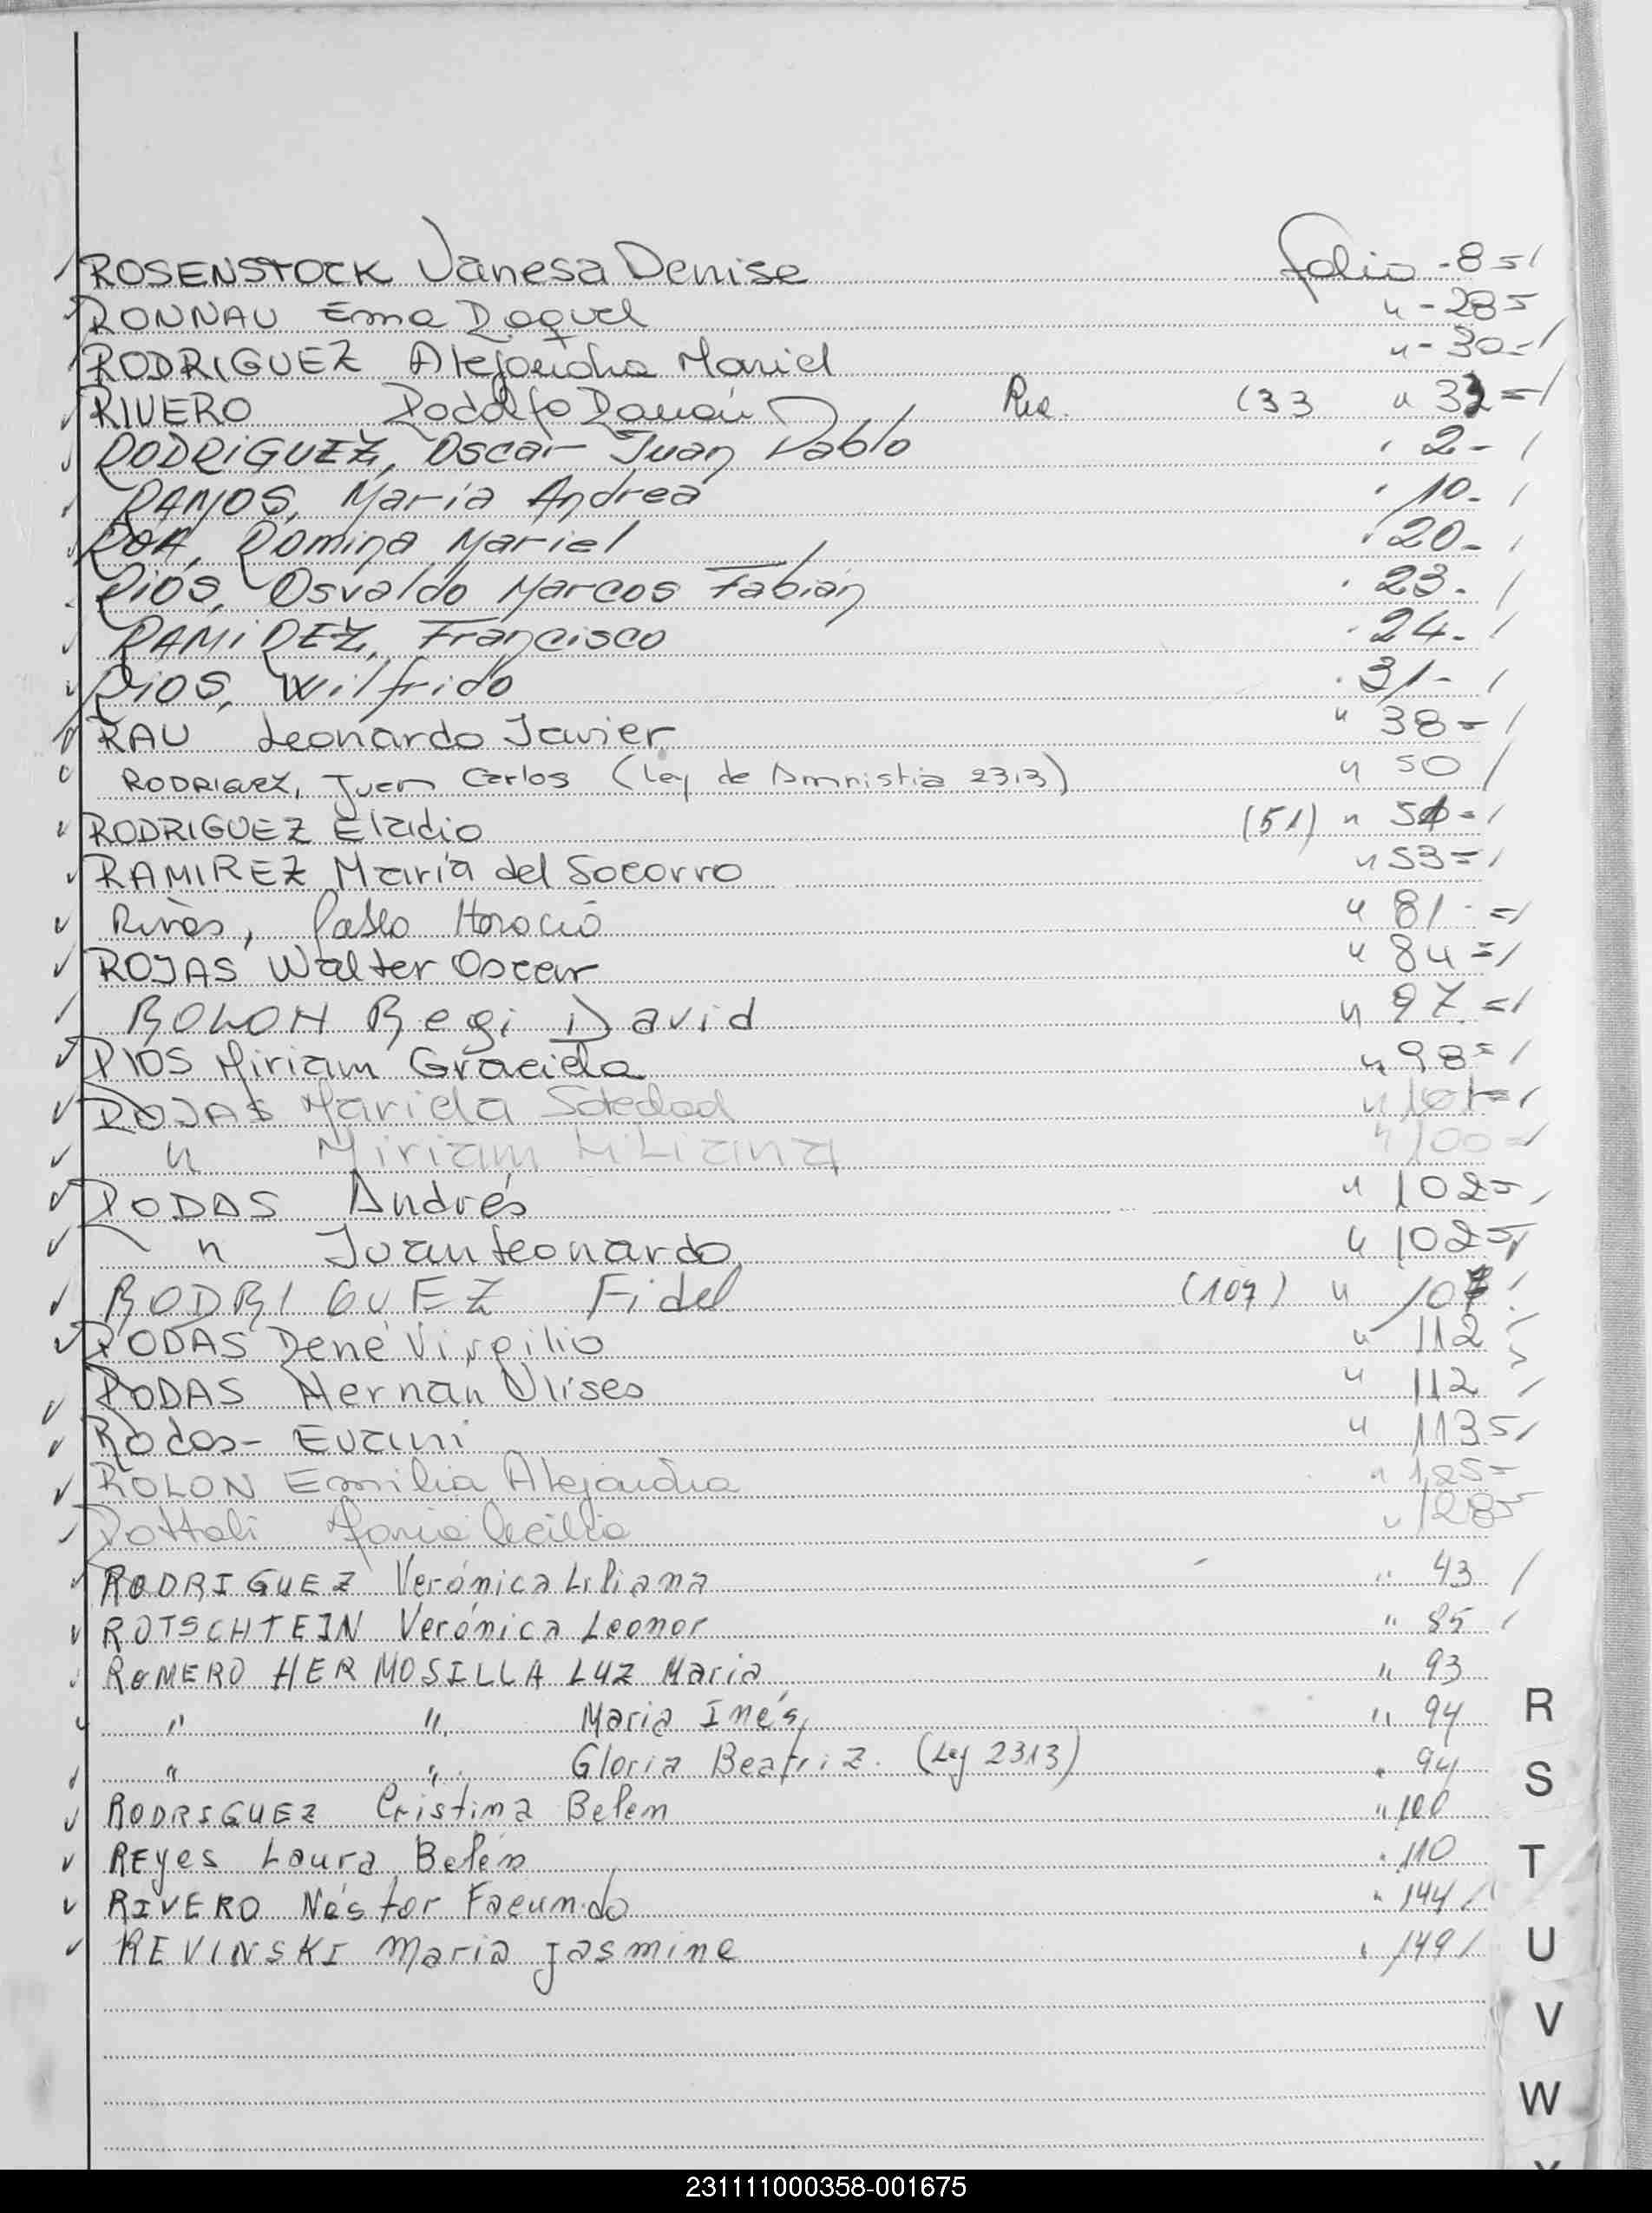 ROSENSTOCK Vanesa Denise folio - 8 =/
RONNAU Ema Raquel " - 28 =
RODRIGUEZ Alejandra Mariel " - 30 = /
RIVERO Rodolfo Damián (33 " 33 = /
RODRIGUEZ, Oscar Juan Pablo " 2 - /
RAMOS, María Andrea " 10 - /
ROA, Romina Mariel " 20 - /
Rios, Osvaldo Marcos Fabián " 23 - /
RAMIREZ, Francisco " 24 - /
RIOS, Wilfrido " 31 - /
RAU Leonardo Javier " 38 = /
RODRIGUEZ, Juan Carlos (Ley de Amnistia 2313) " 50 /
RODRIGUEZ Eladio (51) " 51 = /
RAMIREZ María del Socorro " 53 = /
Rivas, Pablo Horacio " 81 = /
ROJAS Walter Oscar " 84 = /
ROLON Regi David " 97 = /
RIOS Miriam Graciela " 98 = /
ROJAS Mariela Soledad " 101 = /
" Miriam Liliana " 100 = /
RODAS Andrés " 102 = /
" Juan Leonardo " 102 = /
RODRIGUEZ Fidel (107) " 107 /
RODAS René Virgilio " 112
RODAS Hernan Ulises " 112 /
Rodas - Evani " 113 = /
ROLON Emilia Alejandra " 125 =
Rottoli María Cecilia " 128 =
RODRIGUEZ Verónica Liliana " 43 /
ROTSCHTEIN Verónica Leonor " 85 /
ROMERO HERMOSILLA LUZ Maria " 93
" " Maria Inés " 94
" " Gloria Beatriz. (Ley 2313) " 94
RODRIGUEZ Cristina Belem " 100
REyes Laura Belén " 110
RIVERO Néstor Facundo " 144 /
REVINSKI Maria jasmine " 149 /
R
S
T
U
V
W
231111000358-001675